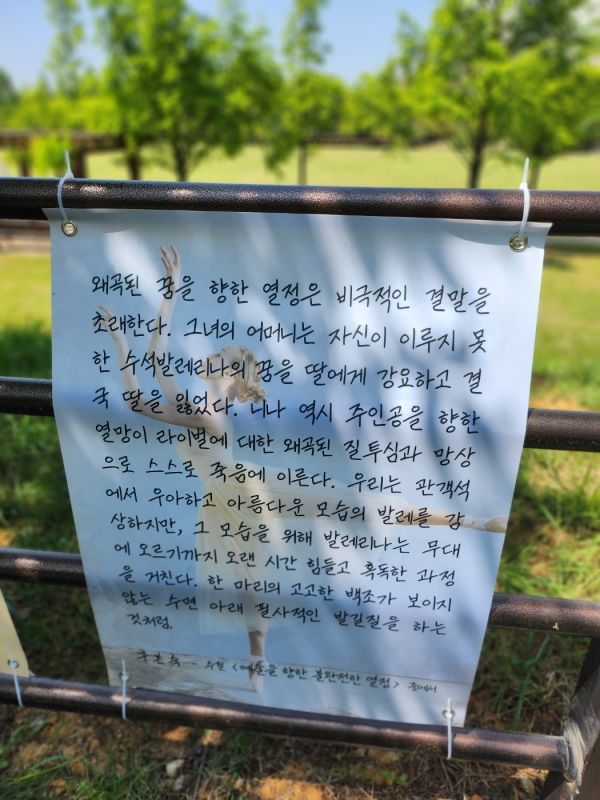 왜곡된 꿈을 향한 열정은 비극적인 결말을
초래한다. 그녀의 어머니는 자신이 이루지 못
한 수석발레리나의 꿈을 딸에게 강요하고 결
국 딸을 잃었다. 니나 역시 주인공을 향한
열망이 라이벌에 대한 왜곡된 질투심과 망상
으로 스스로 죽음에 이른다. 우리는 관객석
에서 우아하고 아름다운 모습의 발레를 감
상하지만, 그 모습을 위해 발레리나는 무대
에 오르기까지 오랜 시간 힘들고 혹독한 과정
을 거친다. 한 마리의 고고한 백조가 보이지
않는 수면 아래 필사적인 발길질을 하는
것처럼.
구본숙 - 수필 <예술을 향한 불완전한 열정> 중에서